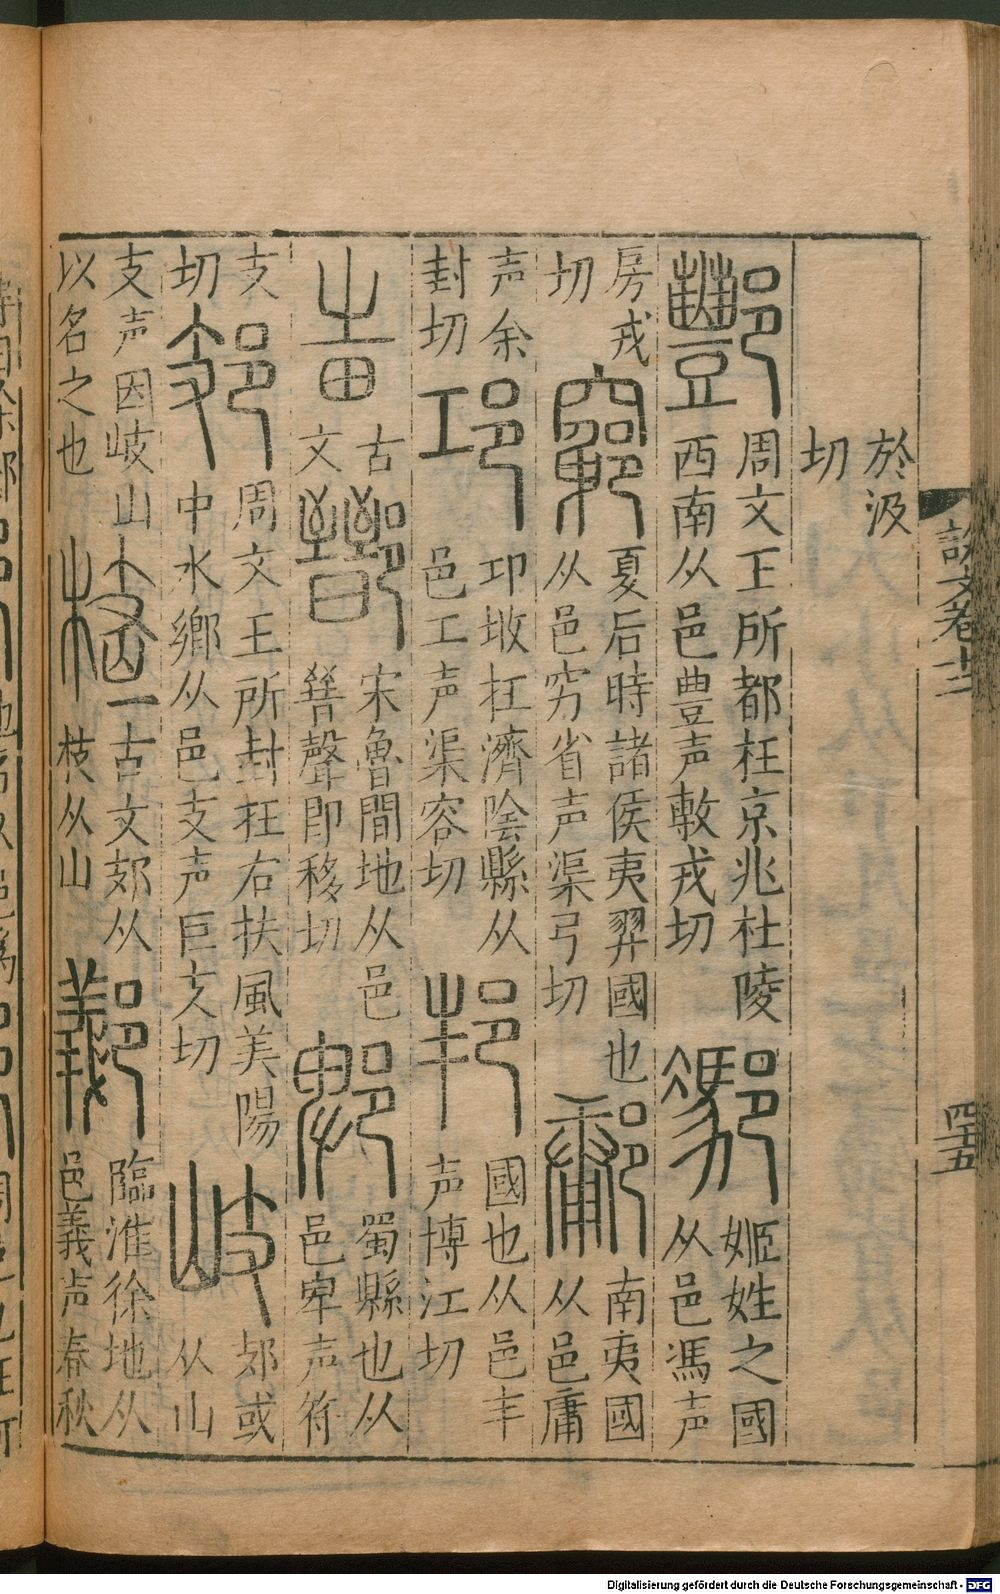 於汲
切
酆周文王所都在京兆杜陵
西南从邑豊声敷戎切
䣕姬姓之國
从邑馮声
房戎
切
竆夏后時諸侯夷羿國也
从邑穷省声渠弓切
鄘南夷國
从邑庸
声余
封切
邛邛地在濟陰縣从
邑工声渠容切
邦國也从邑丰
声博江切
𤰫古
文
𨞪宋魯間地从邑
朁聲即移切
郫蜀縣也从
邑卑声符
支
切
𨙸周文王所封在右扶風美陽
中水鄉从邑支声巨支切
岐郂或
从山
支声因岐山
以名之也
𣖌古文郂从
枝从山
䣡臨淮徐地从
邑義声春秋
説文卷十二
四十五
Digitalisierung gefördert durch die Deutsche Forschungsgemeinschaft - DFG